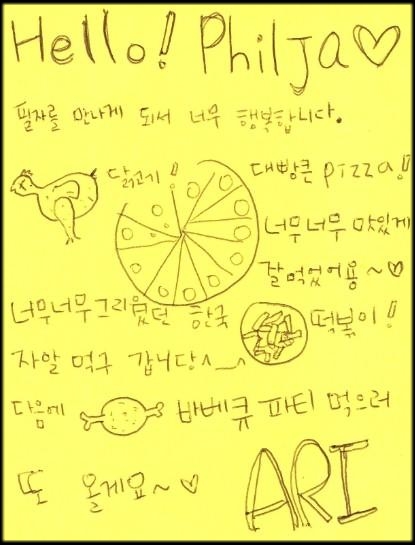 Hello! Philja♡
필자를 만나게 되서 너무 행복합니다.
닭고기! 대빵큰 pizza!
너무너무 맛있게
잘먹었어용~♡
너무너무그리웠던 한국 떡볶이!
자알 먹구 갑니당^__^
다음에 바베큐 파티 먹으러
또 올게요~♡
ARI